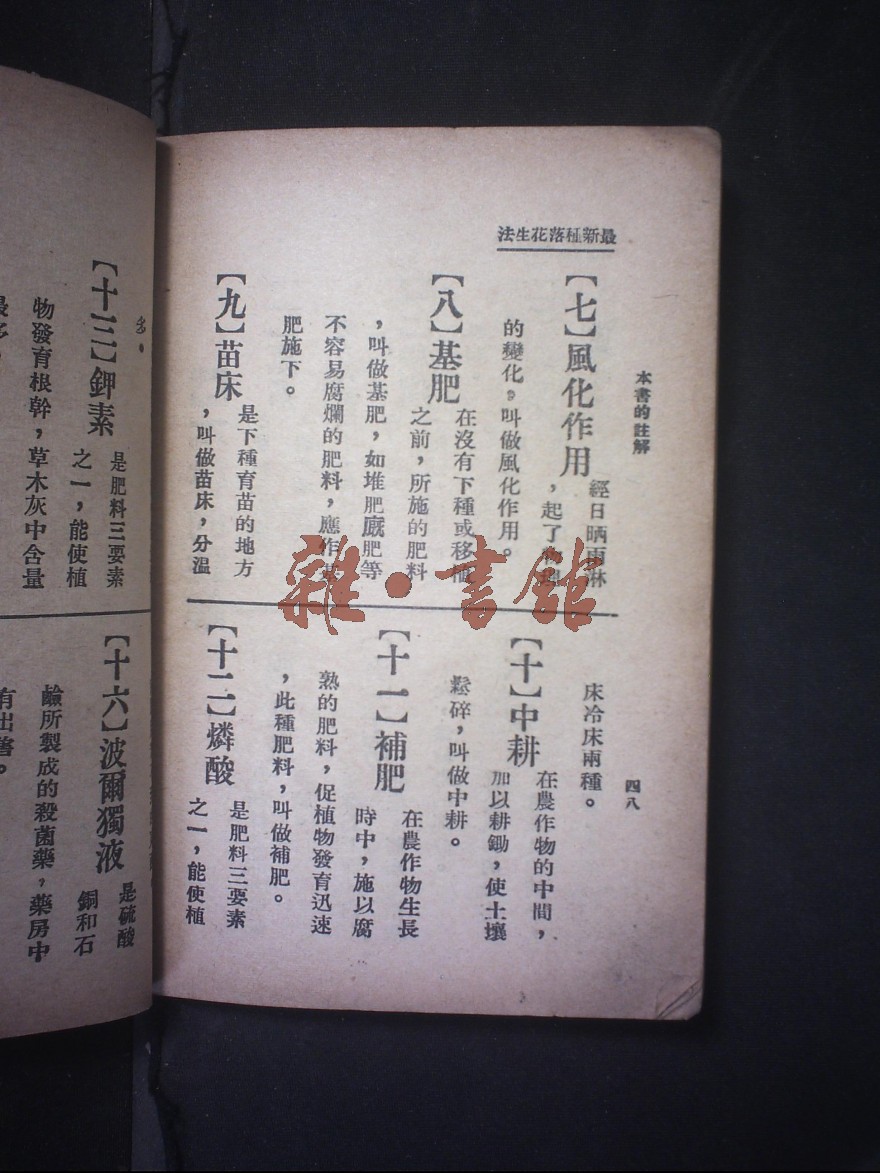 最新種落花生法
本書的註解
四八
【七】風化作用
經日晒雨淋
，起了物理
的變化，叫做風化作用。
【八】基肥
在沒有下種或移植
之前，所施的肥料
，叫做基肥，如堆肥廐肥等
不容易腐爛的肥料，應作基
肥施下。
【九】苗床
是下種育苗的地方
，叫做苗床，分温
床冷床兩種。
【十】中耕
在農作物的中間，
加以耕鋤，使土壤
鬆碎，叫做中耕。
【十一】補肥
在農作物生長
時中，施以腐
熟的肥料，促植物發育迅速
，此種肥料，叫做補肥。
【十二】燐酸
是肥料三要素
之一，能使植
多。
【十三】鉀素
是肥料三要素
之一，能使植
物發育根幹，草木灰中含量
最多，
【十六】波爾獨液
是硫酸
銅和石
鹼所製成的殺菌藥，藥房中
有出售。
雜·書館